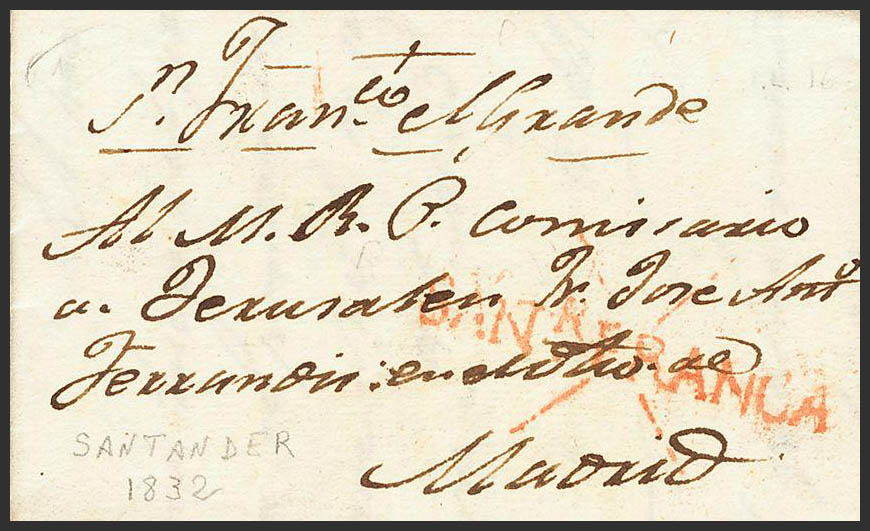 Sn. Franco. el Grande
Al M. R. P. Comisario
a. Jerusalen Fr. Jose Anto
Ferrandis: en el dho. de
Madrid
FRANCA
SANTANDER
1832